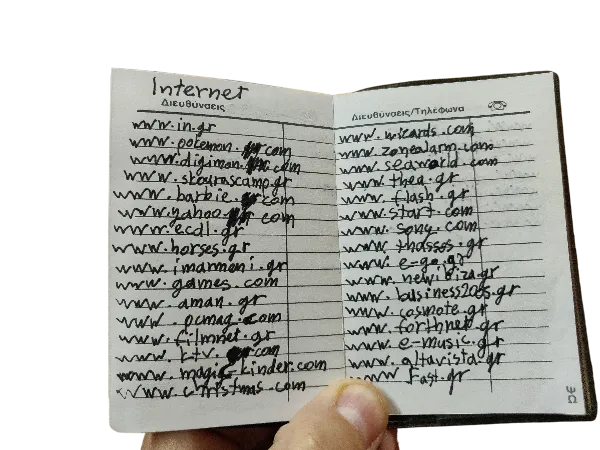 Internet
Διευθύνσεις
www.in.gr
www.pokemon.com
www.digimon.com
www.skourascamp.gr
www.barbie.com
www.yahoo.com
www.ecdl.gr
www.horses.gr
www.imarmeni.gr
www.games.com
www.aman.gr
www.pcmag.com
www.filmnet.gr
www.rtv.com
www.magic-kinder.com
www.christmas.com
Διευθύνσεις/Τηλέφωνα
www.wizards.com
www.zonealarm.com
www.seaworld.com
www.thea.gr
www.flash.gr
www.start.com
www.sony.com
www.thassos.gr
www.e-go.gr
www.newibiza.gr
www.business2005.gr
www.cosmote.gr
www.forthnet.gr
www.e-music.gr
www.altavista.gr
www.Fast.gr